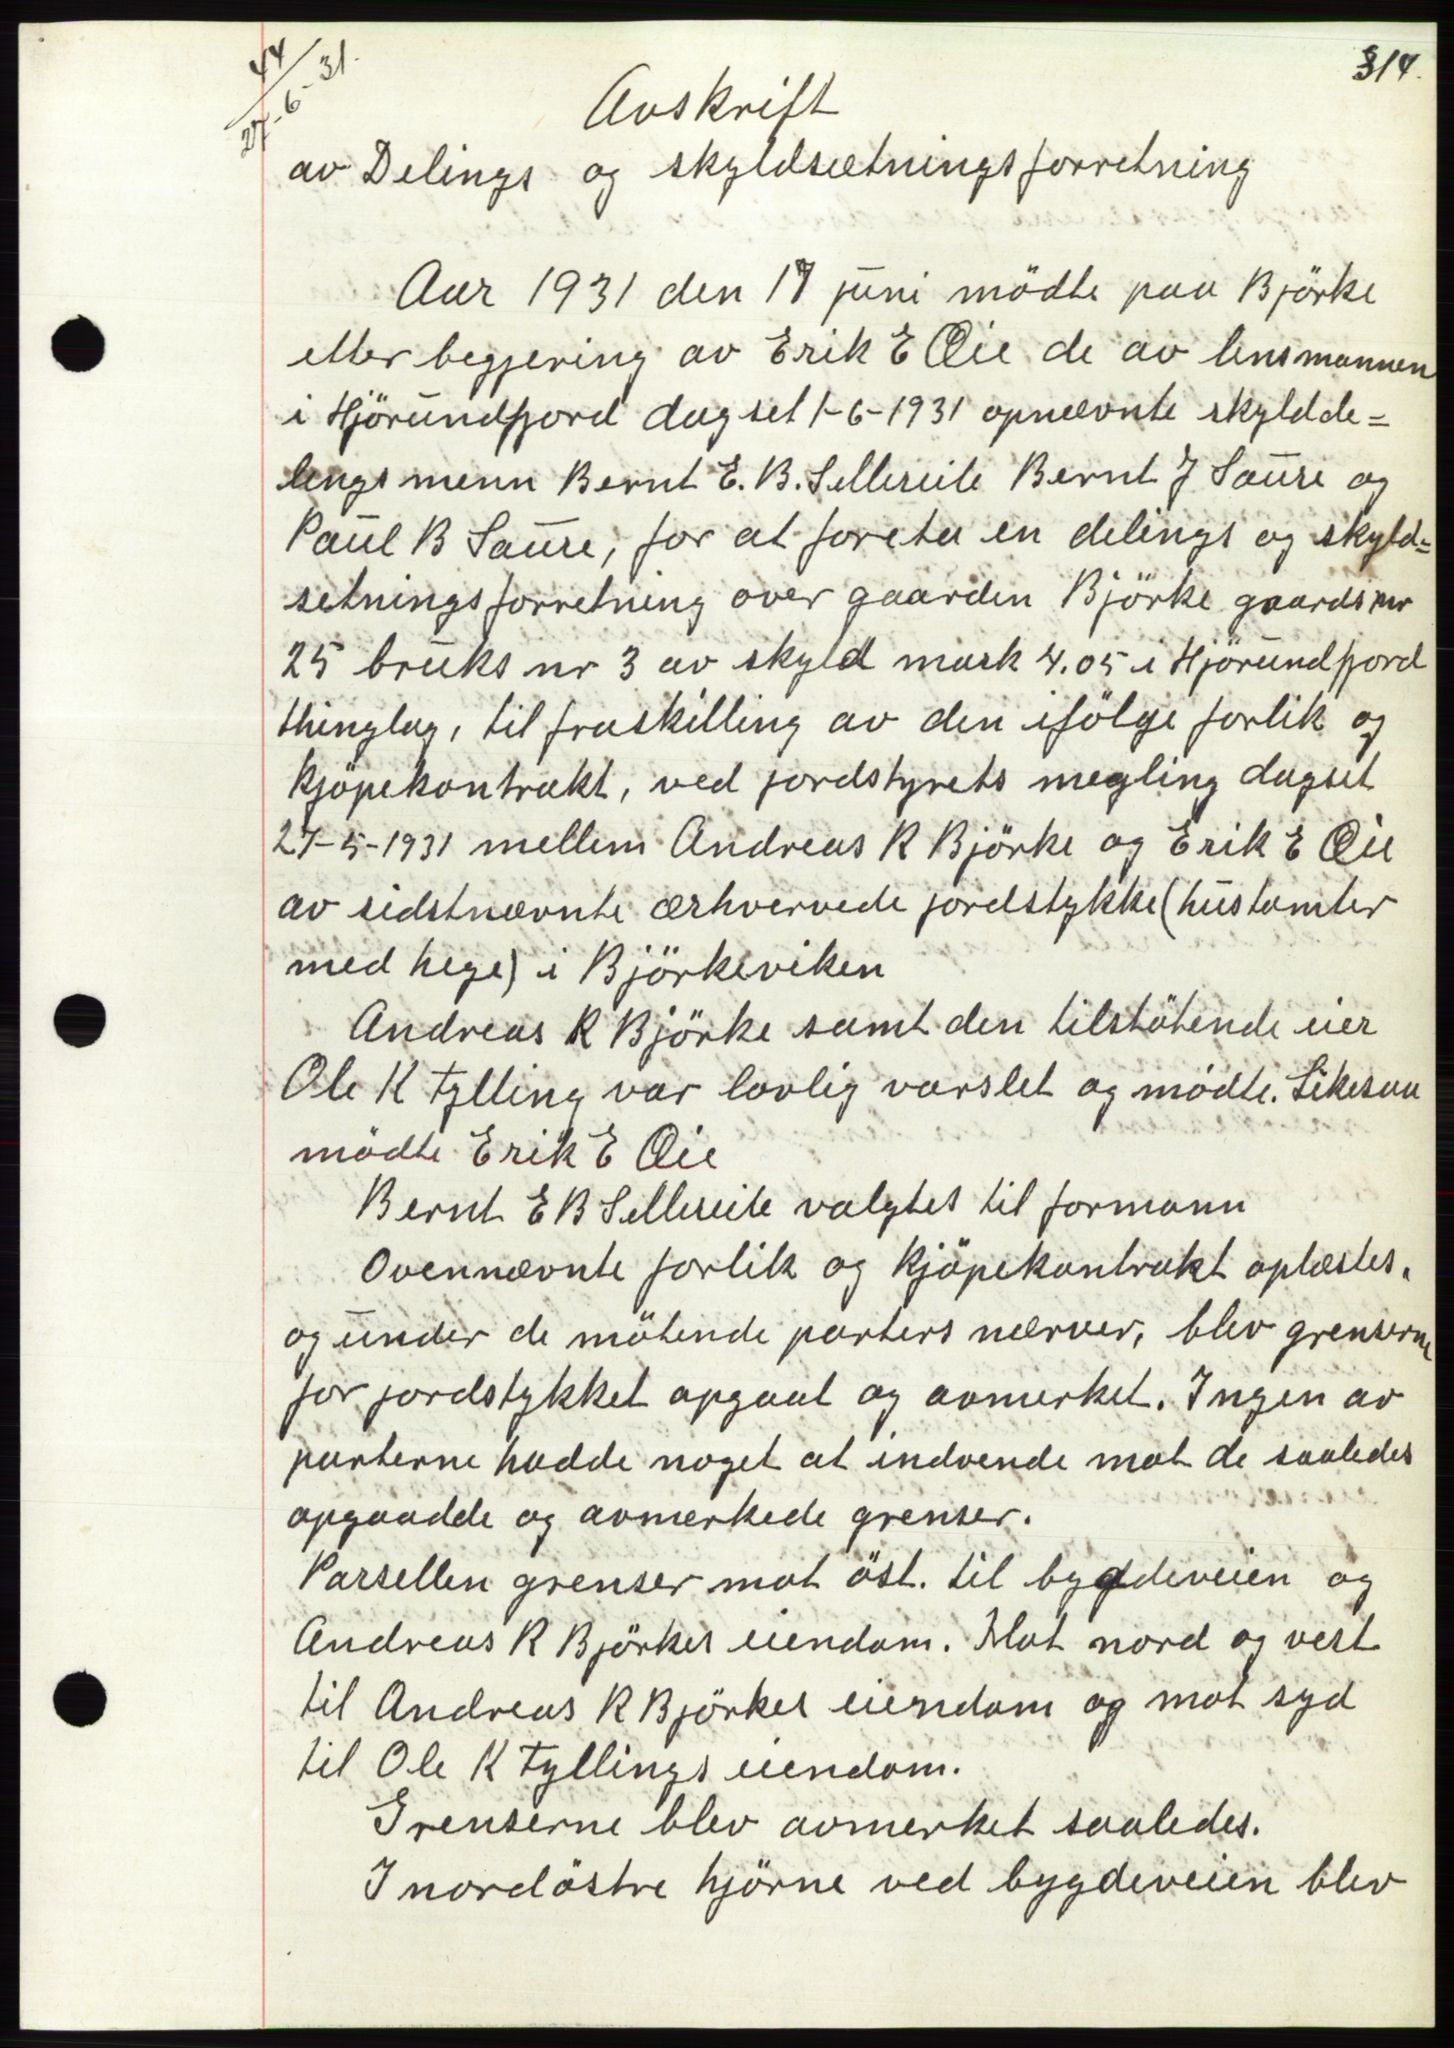 44/27-6-31.
314.
Avskrift
av Delings og skyldsætningsforretning
Aar 1931 den 17 juni mödte paa Björke
etter begjæring av Erik E Øie de av lensmannen
i Hjörundfjord dagset 1-6-1931 opnævnte skyldde=
lings menn Bernt E. B. Sellereite Bernt J Saure og
Paul B Saure, for at foreta en delings og skyld=
setningsforretning over gaarden Björke gaardsnr
25 bruks nr 3 av skyld mark 4.05 i Hjörundfjord
thinglag, til fraskilling av den ifölge forlik og
kjöpekontrakt, ved jordstyrets megling dagset
27-5-1931 mellem Andreas R Björke og Erik E Øie
av sidstnævnte ærhvervede jordstykke (hustomter
med hege) i Björkeviken
Andreas R Björke samt den tilstötende eier
Ole K Tylling var lovlig varslet og mödte. Likesaa
mödte Erik E Øie
Bernt E B Sellereite valgtes til formann
Ovennævnte forlik og kjöpekontrakt oplæstes.
og under de mötende parters nærver, blev grenserne
for jordstykket opgaat og avmerket. Ingen av
parterne hadde noget at indvende mot de saaledes
opgaadde og avmerkede grenser.
Parsellen grenser mot öst. til bygdeveien og
Andreas R Björkes eiendom. Mot nord og vest
til Andreas R Björkes eiendom og mot syd
til Ole K Tyllings eiendom.
Grenserne blev avmerket saaledes.
I nordöstre hjörne ved bygdeveien blev